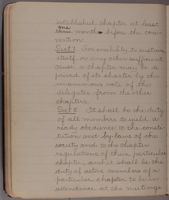 established chapter at least
one month before the con-
vention.
Sect. 4. For inability to sustain
itself, or any other sufficient
cause a chapter may be de-
prived of its charter by the
unanimous vote of the
delegates from the other
chapters.
Sect. 5. It shall be the duty
of all members to yield a
ready obedience to the consti-
tution and by-laws of the
society and to the
regulations of their particular
chapter, and it shall be the
duty of active members of a
particular chapter to be in
attendance at the meetings